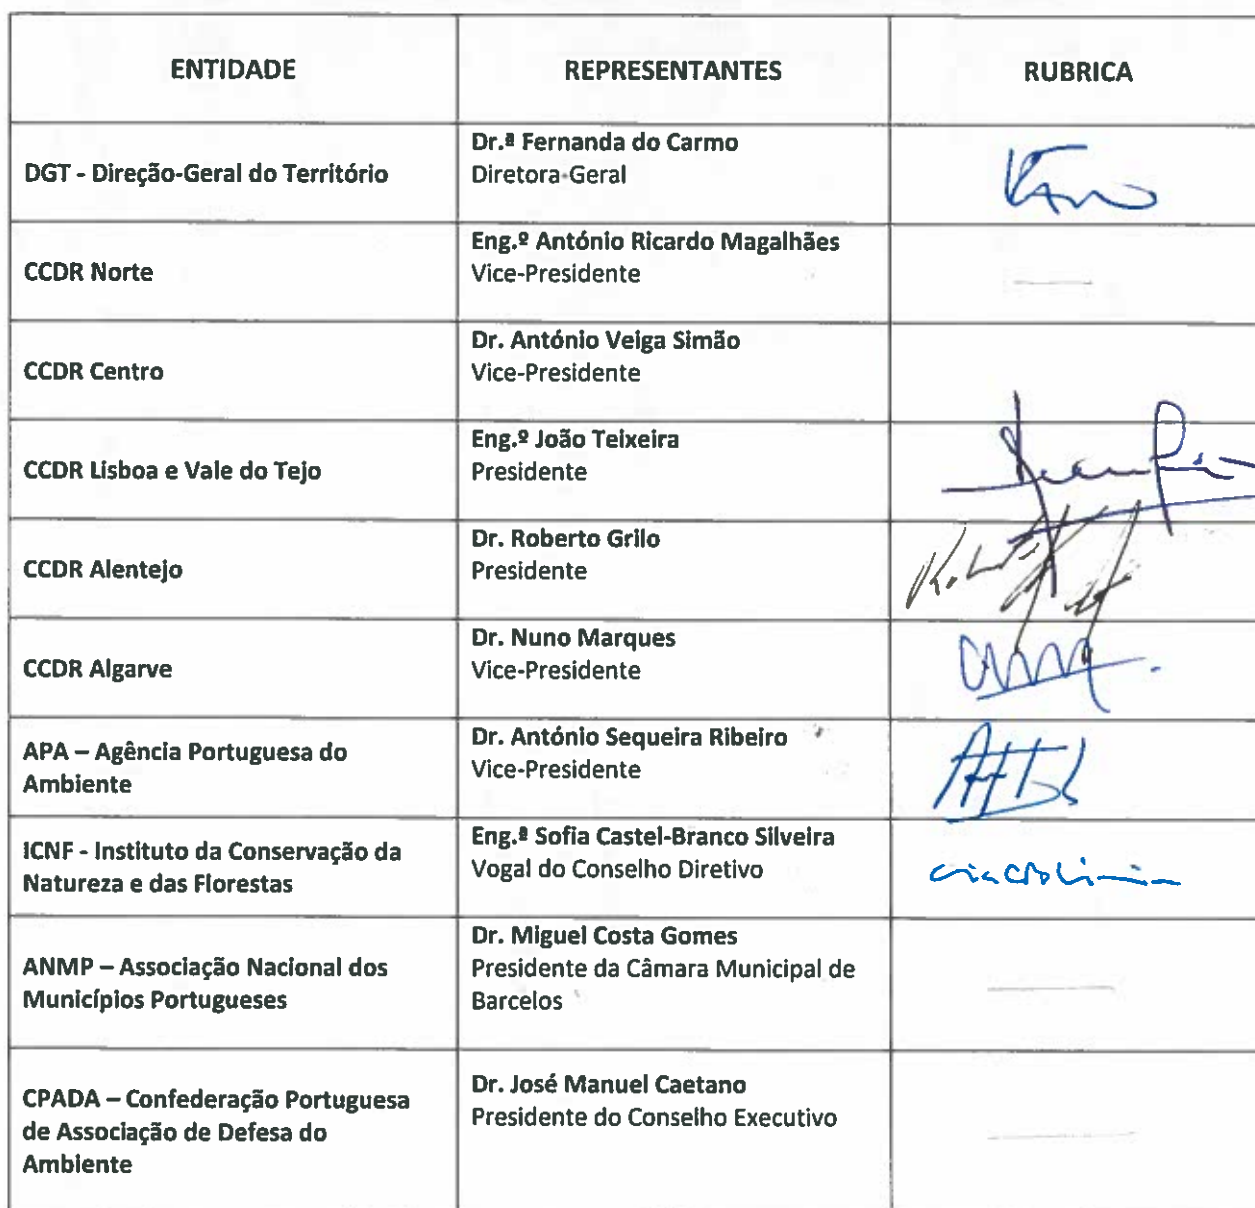 ENTIDADE
REPRESENTANTES
RUBRICA
DGT - Direção-Geral do Território
Dr.ª Fernanda do Carmo
Diretora-Geral
CCDR Norte
Eng.º António Ricardo Magalhães
Vice-Presidente
CCDR Centro
Dr. António Veiga Simão
Vice-Presidente
CCDR Lisboa e Vale do Tejo
Eng.º João Teixeira
Presidente
CCDR Alentejo
Dr. Roberto Grilo
Presidente
CCDR Algarve
Dr. Nuno Marques
Vice-Presidente
APA – Agência Portuguesa do
Ambiente
Dr. António Sequeira Ribeiro
Vice-Presidente
ICNF - Instituto da Conservação da
Natureza e das Florestas
Eng.ª Sofia Castel-Branco Silveira
Vogal do Conselho Diretivo
ANMP – Associação Nacional dos
Municípios Portugueses
Dr. Miguel Costa Gomes
Presidente da Câmara Municipal de
Barcelos
CPADA – Confederação Portuguesa
de Associação de Defesa do
Ambiente
Dr. José Manuel Caetano
Presidente do Conselho Executivo